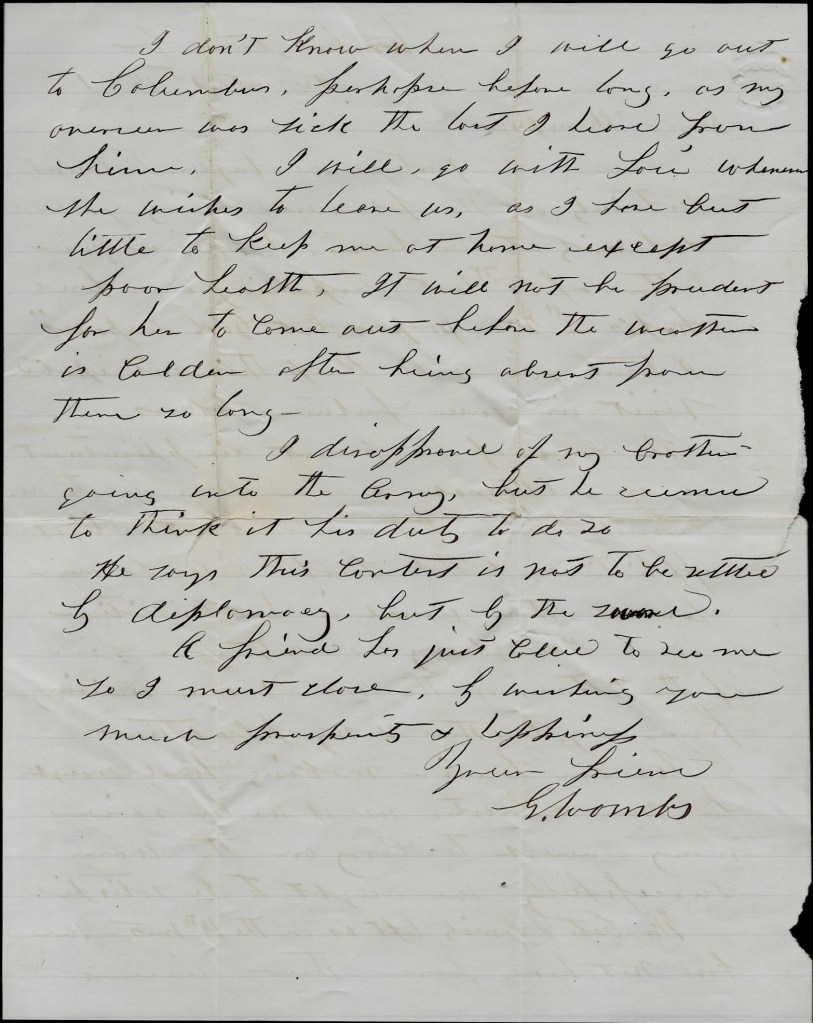 I don't know when I will go out
to Columbus, perhaps before long, as my
overseer was sick the last I heard from
him. I will, go with Lou whenever
she wishes to leave us, as I have but
little to keep me at home except
poor health, It will not be prudent
for her to come out before the weather
is Colder after being absent from
there so long—
I disapprove of my brother
going into the Army, but he seems
to think it his duty to do so
He says this Contest is not to be settled
by diplomacy, but by the
A friend has just Called to see me
so I must close, by wishing you
much prosperity & happiness
Your friend
G. Coombs